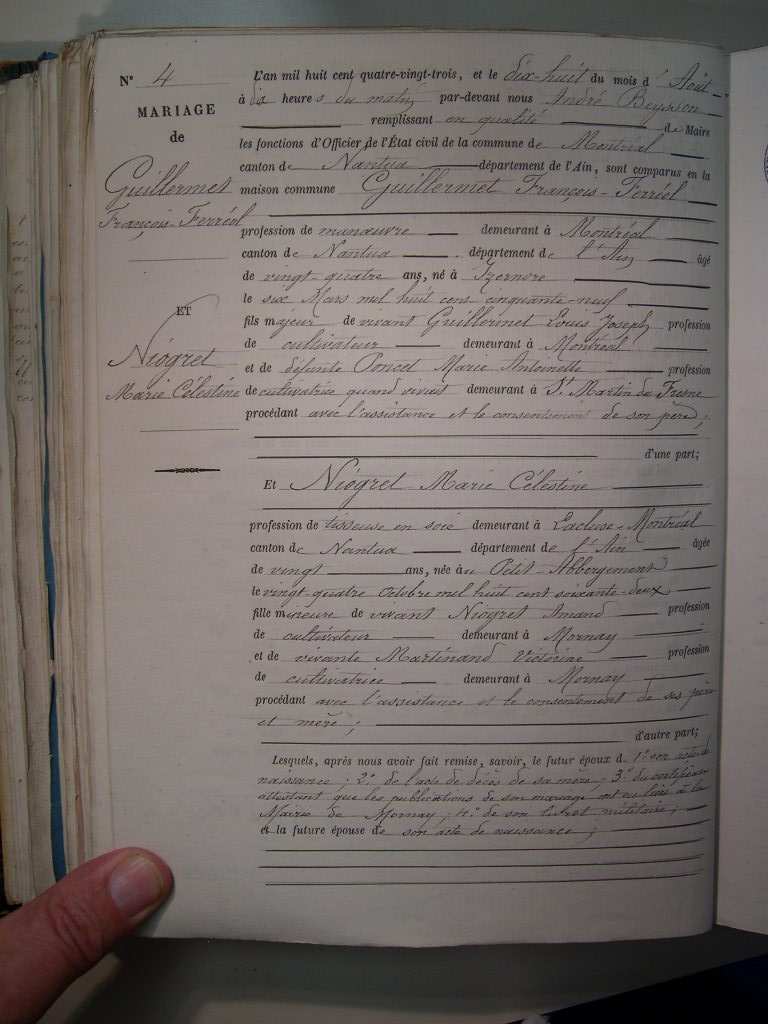 N° 4
MARIAGE
de
Guillermet
François-Ferréol
ET
Niogret
Marie Célestine
L'an mil huit cent quatre-vingt-trois, et le dix-huit du mois d'Août
à dix heures du matin par-devant nous André Beysson
remplissant en qualité de Maire
les fonctions d'Officier de l'État civil de la commune de Montréal
canton de Nantua département de l'Ain, sont comparus en la
maison commune Guillermet François-Ferréol
profession de manœuvre demeurant à Montréal
canton de Nantua département de l'Ain âgé
de vingt-quatre ans, né à Izernore
le six Mars mil huit cent cinquante-neuf
fils majeur de vivant Guillermet Louis Joseph profession
de cultivateur demeurant à Montréal
et de défunte Poncet Marie Antoinette profession
de cultivatrice quand vivait demeurant à St Martin du Fresne
procédant avec l'assistance et le consentement de son père ;
d'une part;
Et Niogret Marie Célestine
profession de tisseuse en soie demeurant à Lacluse-Montréal
canton de Nantua département de l'Ain âgée
de vingt ans, née au Petit-Abbergement
le vingt-quatre Octobre mil huit cent soixante-deux
fille mineure de vivant Niogret Amand profession
de cultivateur demeurant à Mornay
et de vivante Martinand Victorine profession
de cultivatrice demeurant à Mornay
procédant avec l'assistance et le consentement de ses père
et mère ;
d'autre part;
Lesquels, après nous avoir fait remise, savoir, le futur époux d. 1° son acte de
naissance ; 2° de l'acte de décès de sa mère ; 3° du certificat
attestant que les publications de son mariage ont eu lieu à la
Mairie de Mornay ; 4° de son livret militaire ;
et la future épouse de son acte de naissance ;